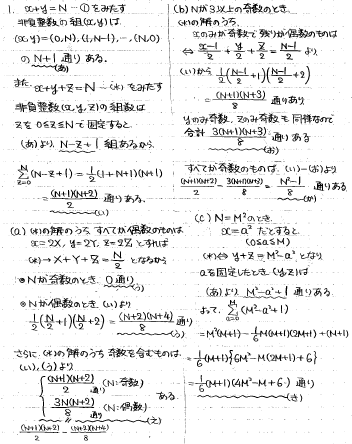 1. x+y=N …①をみたす
非負整数の組(x,y)は
(x,y)=(0,N),(1,N-1),…,(N,0)
の N+1 通りある.
(あ)
また x+y+z=N …(*) をみたす
非負整数(x,y,z)の組数は
zを 0≦z≦N で固定すると
(あ)より, N-z+1 組あるから
N∑z=0 (N-z+1) = 1/2 (1+N+1)(N+1)
= (N+1)(N+2)/2 通りある.
(い)
(a) (*)の解のうち, すべてが偶数のものは
x=2X, y=2Y, z=2Z とすれば
(*)→ X+Y+Z = N/2 となるから
◎Nが奇数のとき, 0通り
(う)
◎Nが偶数のとき, (い)より
1/2 (N/2+1)(N/2+2) = (N+2)(N+4)/8 通り
(う)
さらに, (*)の解のうち 奇数を含むものは
(い),(う)より
{ (N+1)(N+2)/2 通り (N:奇数)
3N(N+2)/8 通り (N:偶数) ある.
(え)
(N+1)(N+2)/2 - (N+2)(N+4)/8
(b) Nが3以上の奇数のとき,
(*)の解のうち,
xのみが奇数で残りが偶数のものは
⇔ x-1/2 + y/2 + z/2 = N-1/2 より
(い)から 1/2 (N-1/2+1)(N-1/2+2)
= (N+1)(N+3)/8 通りあり
yのみ奇数, zのみ奇数も同様なので
合計 3(N+1)(N+3)/8 通りある
(お)
すべてが奇数のものは, (い)-(お)より
(N+1)(N+2)/2 - 3(N+1)(N+3)/8 = N²-1/8 通りある
(か)
(c) N=M²のとき.
x=a² だとすると
(0≦a≦M)
(*)⇔ y+z=M²-a² となり
aを固定したとき(y,z)は
(あ)より M²-a²+1 通りある
よって, M∑a=0 (M²-a²+1)
=M²(M+1)-1/6 M(M+1)(2M+1)+(M+1)
=1/6 (M+1){6M²-M(2M+1)+6}
=1/6 (M+1)(4M²-M+6) 通り
(き)